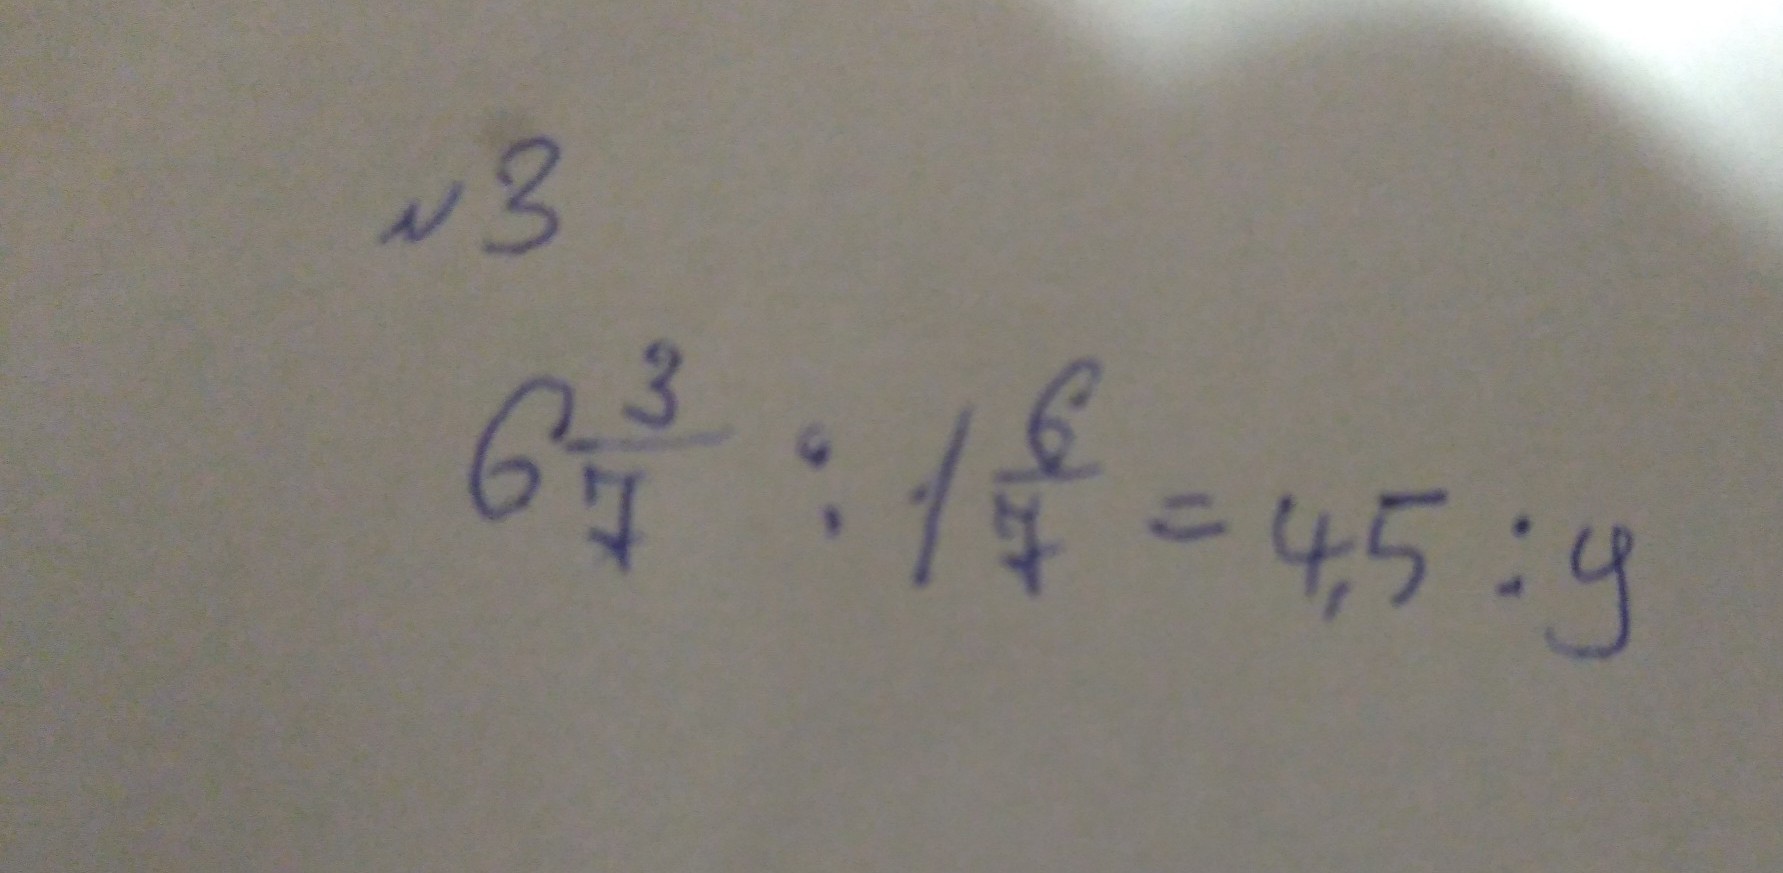 №3
6 3/7 : 1 6/7 = 4,5 : y